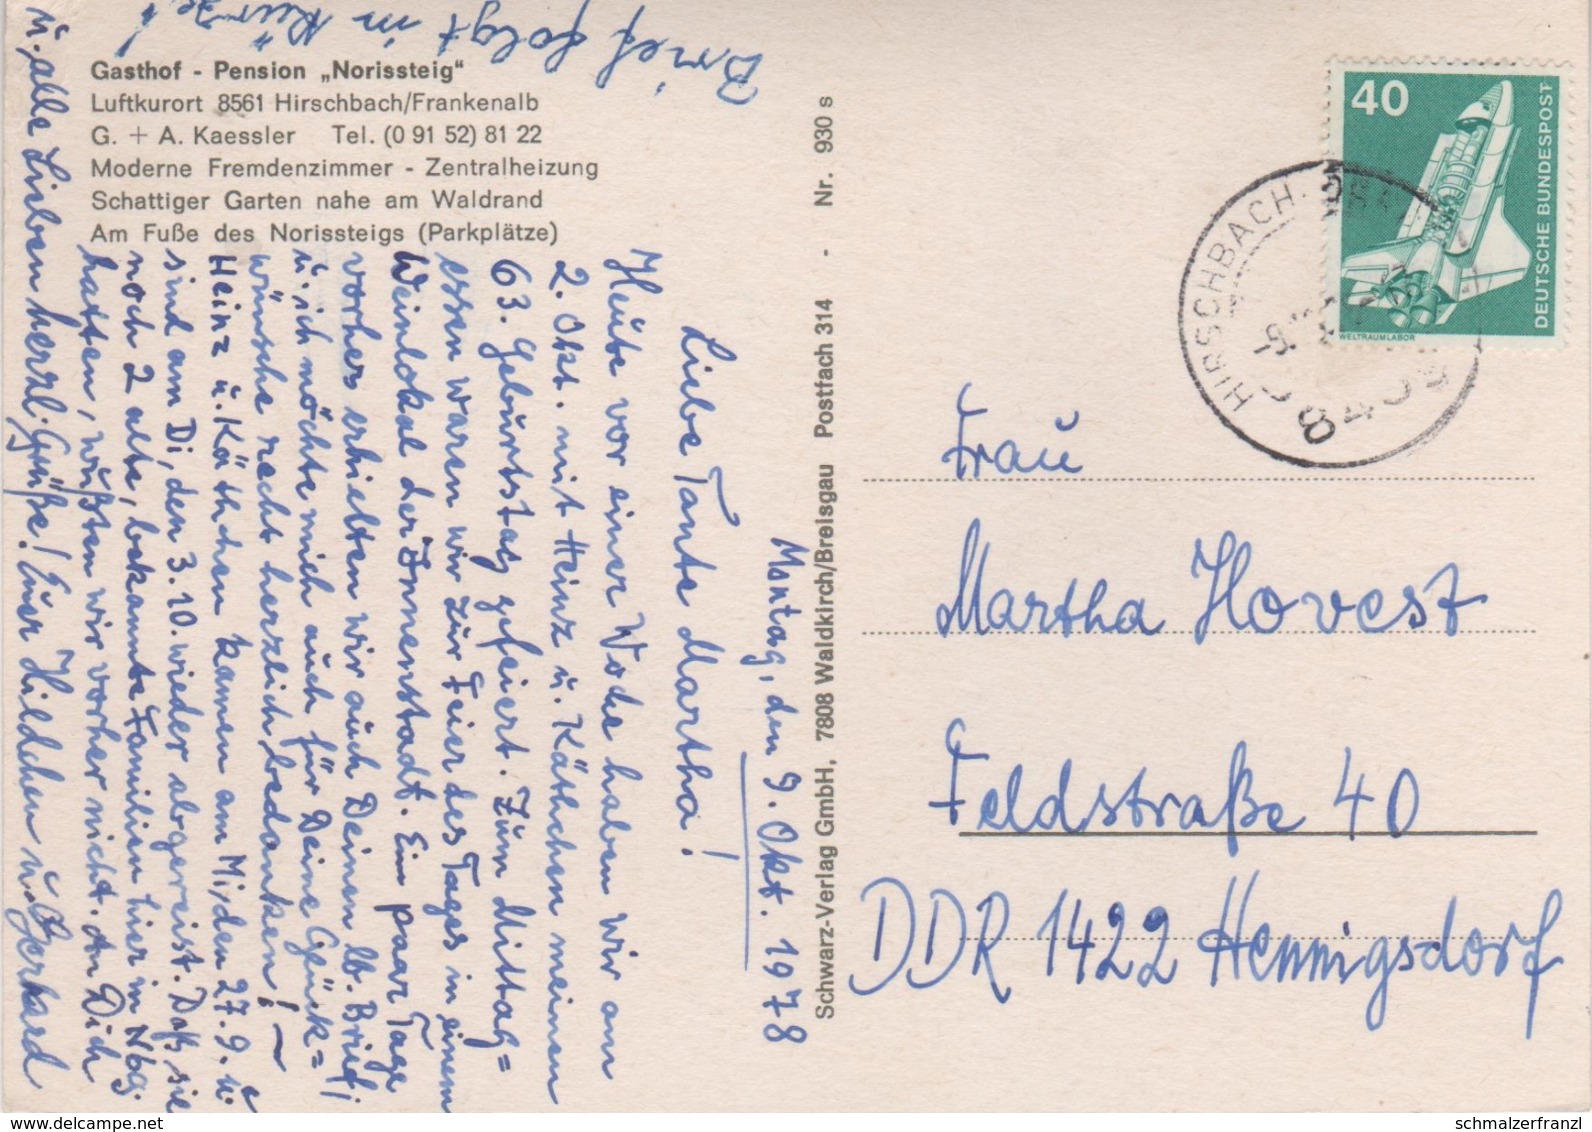 Brief folgt in Kürze!
Gasthof - Pension „Norissteig“
Luftkurort 8561 Hirschbach/Frankenalb
G. + A. Kaessler Tel. (0 91 52) 81 22
Moderne Fremdenzimmer - Zentralheizung
Schattiger Garten nahe am Waldrand
Am Fuße des Norissteigs (Parkplätze)
Montag, den 9. Okt. 1978
Liebe Tante Martha!
Heute vor einer Woche haben wir am
2. Okt. mit Heinz u. Käthchen meinen
63. Geburtstag gefeiert. Zum Mittag=
essen waren wir zur Feier des Tages in einem
Weinlokal der Innenstadt. Ein paar Tage
vorher erhielten wir auch Deinen lb. Brief,
u. ich möchte mich auch für Deine Glück=
wünsche recht herzlich bedanken! –
Heinz u. Käthchen kamen am Mi, den 27.9. u.
sind am Di, den 3.10. wieder abgereist. Daß sie
noch 2 alte, bekannte Familien hier in Nbg.
hatten, wußten wir vorher nicht. An Dich
u. alle Lieben herzl. Grüße! Euer Hildchen u. Gerhard
Schwarz-Verlag GmbH, 7808 Waldkirch/Breisgau Postfach 314 - Nr. 930 s
40
DEUTSCHE BUNDESPOST
WELTRAUMLABOR
HIRSCHBACH
8459
Frau
Martha Hovest
Feldstraße 40
DDR 1422 Hennigsdorf
www.delcampe.net
schmalzerfranzl